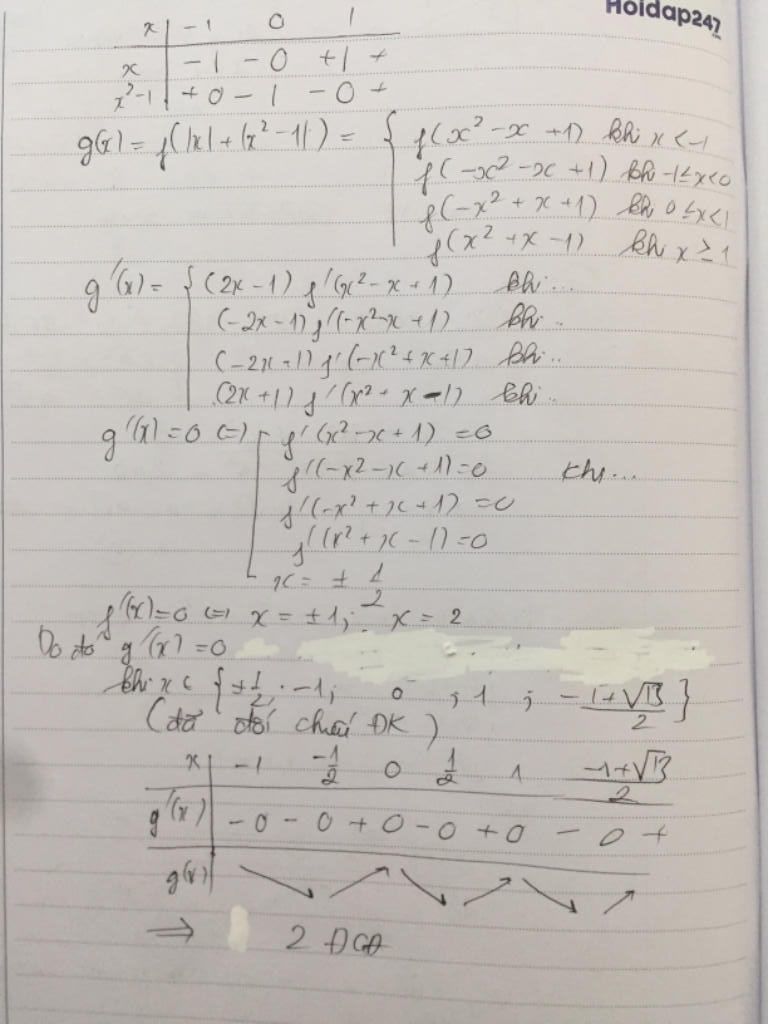 Hoidap247
x | -1 0 1
x | - 1 - 0 + 1 +
x²-1 | + 0 - 1 - 0 +
g(x) = f(|x| + |x² - 1|) = { f(x² - x + 1) khi x < -1
f(-x² - x + 1) khi -1 ≤ x < 0
f(-x² + x + 1) khi 0 ≤ x < 1
f(x² + x - 1) khi x ≥ 1
g'(x) = { (2x - 1) f'(x² - x + 1) khi...
(-2x - 1) f'(-x² - x + 1) khi..
(-2x + 1) f'(-x² + x + 1) khi..
(2x + 1) f'(x² + x - 1) khi..
g'(x) = 0 (=) [ f'(x² - x + 1) = 0
f'(-x² - x + 1) = 0 khi...
f'(-x² + x + 1) = 0
f'(x² + x - 1) = 0
x = ± 1/2
f'(x) = 0 (=) x = ±1; x = 2
Do đó g'(x) = 0
khi x ∈ {±1/2; -1; 0 ; 1 ; -1+√13/2}
(đã đối chiếu ĐK)
x | -1 -1/2 0 1/2 1 -1+√13/2
g'(x) | - 0 - 0 + 0 - 0 + 0 - 0 +
g(x) | ↘ ↗ ↘ ↗ ↘ ↗
⇒ 2 ĐCĐ